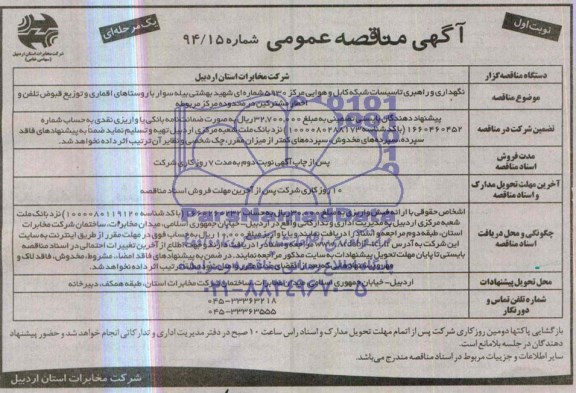 نوبت اول
آگهی مناقصه عمومی شماره ۹۴/۱۵
یک مرحله‌ای
شرکت مخابرات استان اردبیل
(سهامی خاص)
دستگاه مناقصه گزار
شرکت مخابرات استان اردبیل
موضوع مناقصه
نگهداری و راهبری تاسیسات شبکه کابل و هوایی مرکز ۵۹۳۰ شماره‌ای شهید بهشتی بیله سوار با روستاهای اقماری و توزیع قبوض تلفن و
اخطار مشترکین در محدوده مرکز مربوطه
تضمین شرکت در مناقصه
پیشنهاد دهندگان بایستی تضمینی به مبلغ ۳۲,۷۰۰,۰۰۰ ریال به صورت ضمانتنامه بانکی یا واریزی نقدی به حساب شماره
۱۶۶۰۴۶۰۴۵۲ (با کد شناسه ۱۰۰۰۰۰۸۰۲۸۸۱۷۳) نزد بانک ملت شعبه مرکزی اردبیل تهیه و تسلیم نماید ضمناً به پیشنهادهای فاقد
سپرده، سپرده‌های مخدوش، سپرده‌های کمتر از میزان مقرر، چک شخصی و نظایر آن ترتیب اثر داده نخواهد شد.
مدت فروش
اسناد مناقصه
پس از چاپ آگهی نوبت دوم به مدت ۷ روز کاری شرکت
آخرین مهلت تحویل مدارک
و اسناد مناقصه
۱۰ روز کاری شرکت پس از آخرین مهلت فروش اسناد مناقصه
چگونگی و محل دریافت
اسناد مناقصه
اشخاص حقوقی با ارائه فیش واریزی به مبلغ ریال به حساب نزد بانک ملت
شعبه مرکزی اردبیل به مدیریت اداری و تدارکاتی واقع در اردبیل- خیابان جمهوری اسلامی، میدان مخابرات، ساختمان شرکت مخابرات
استان، طبقه دوم مراجعه و اسناد را دریافت نمایند و یا با واریز مبلغ ریال به حساب فوق در مهلت مقرر از طریق اینترنت به سایت
این شرکت به آدرس مراجعه و اسناد را دریافت دارند اطلاع از آخرین تغییرات احتمالی در اسناد مناقصه
بایستی تا پایان مهلت تحویل پیشنهادات به سایت مذکور مراجعه نمایند. در ضمن به پیشنهادهای فاقد امضاء، مشروط، مخدوش، فاقد لاک و
ترتیب اثر داده نخواهد شد.
محل تحویل پیشنهادات
اردبیل- خیابان جمهوری اسلامی میدان مخابرات ساختمان شرکت مخابرات استان، طبقه همکف، دبیرخانه
شماره تلفن تماس و
دورنگار
۰۴۵-۳۳۳۶۳۲۱۸
۰۴۵-۳۳۳۶۳۵۵۵
بازگشایی پاکتها دومین روز کاری شرکت پس از اتمام مهلت تحویل مدارک و اسناد راس ساعت ۱۰ صبح در دفتر مدیریت اداری و تدارکاتی انجام خواهد شد و حضور پیشنهاد
دهندگان در جلسه بلامانع است.
سایر اطلاعات و جزییات مربوط در اسناد مناقصه مندرج می‌باشد.
شرکت مخابرات استان اردبیل
۰۲۱-۸۸۳۴۹۶۷۰-۵